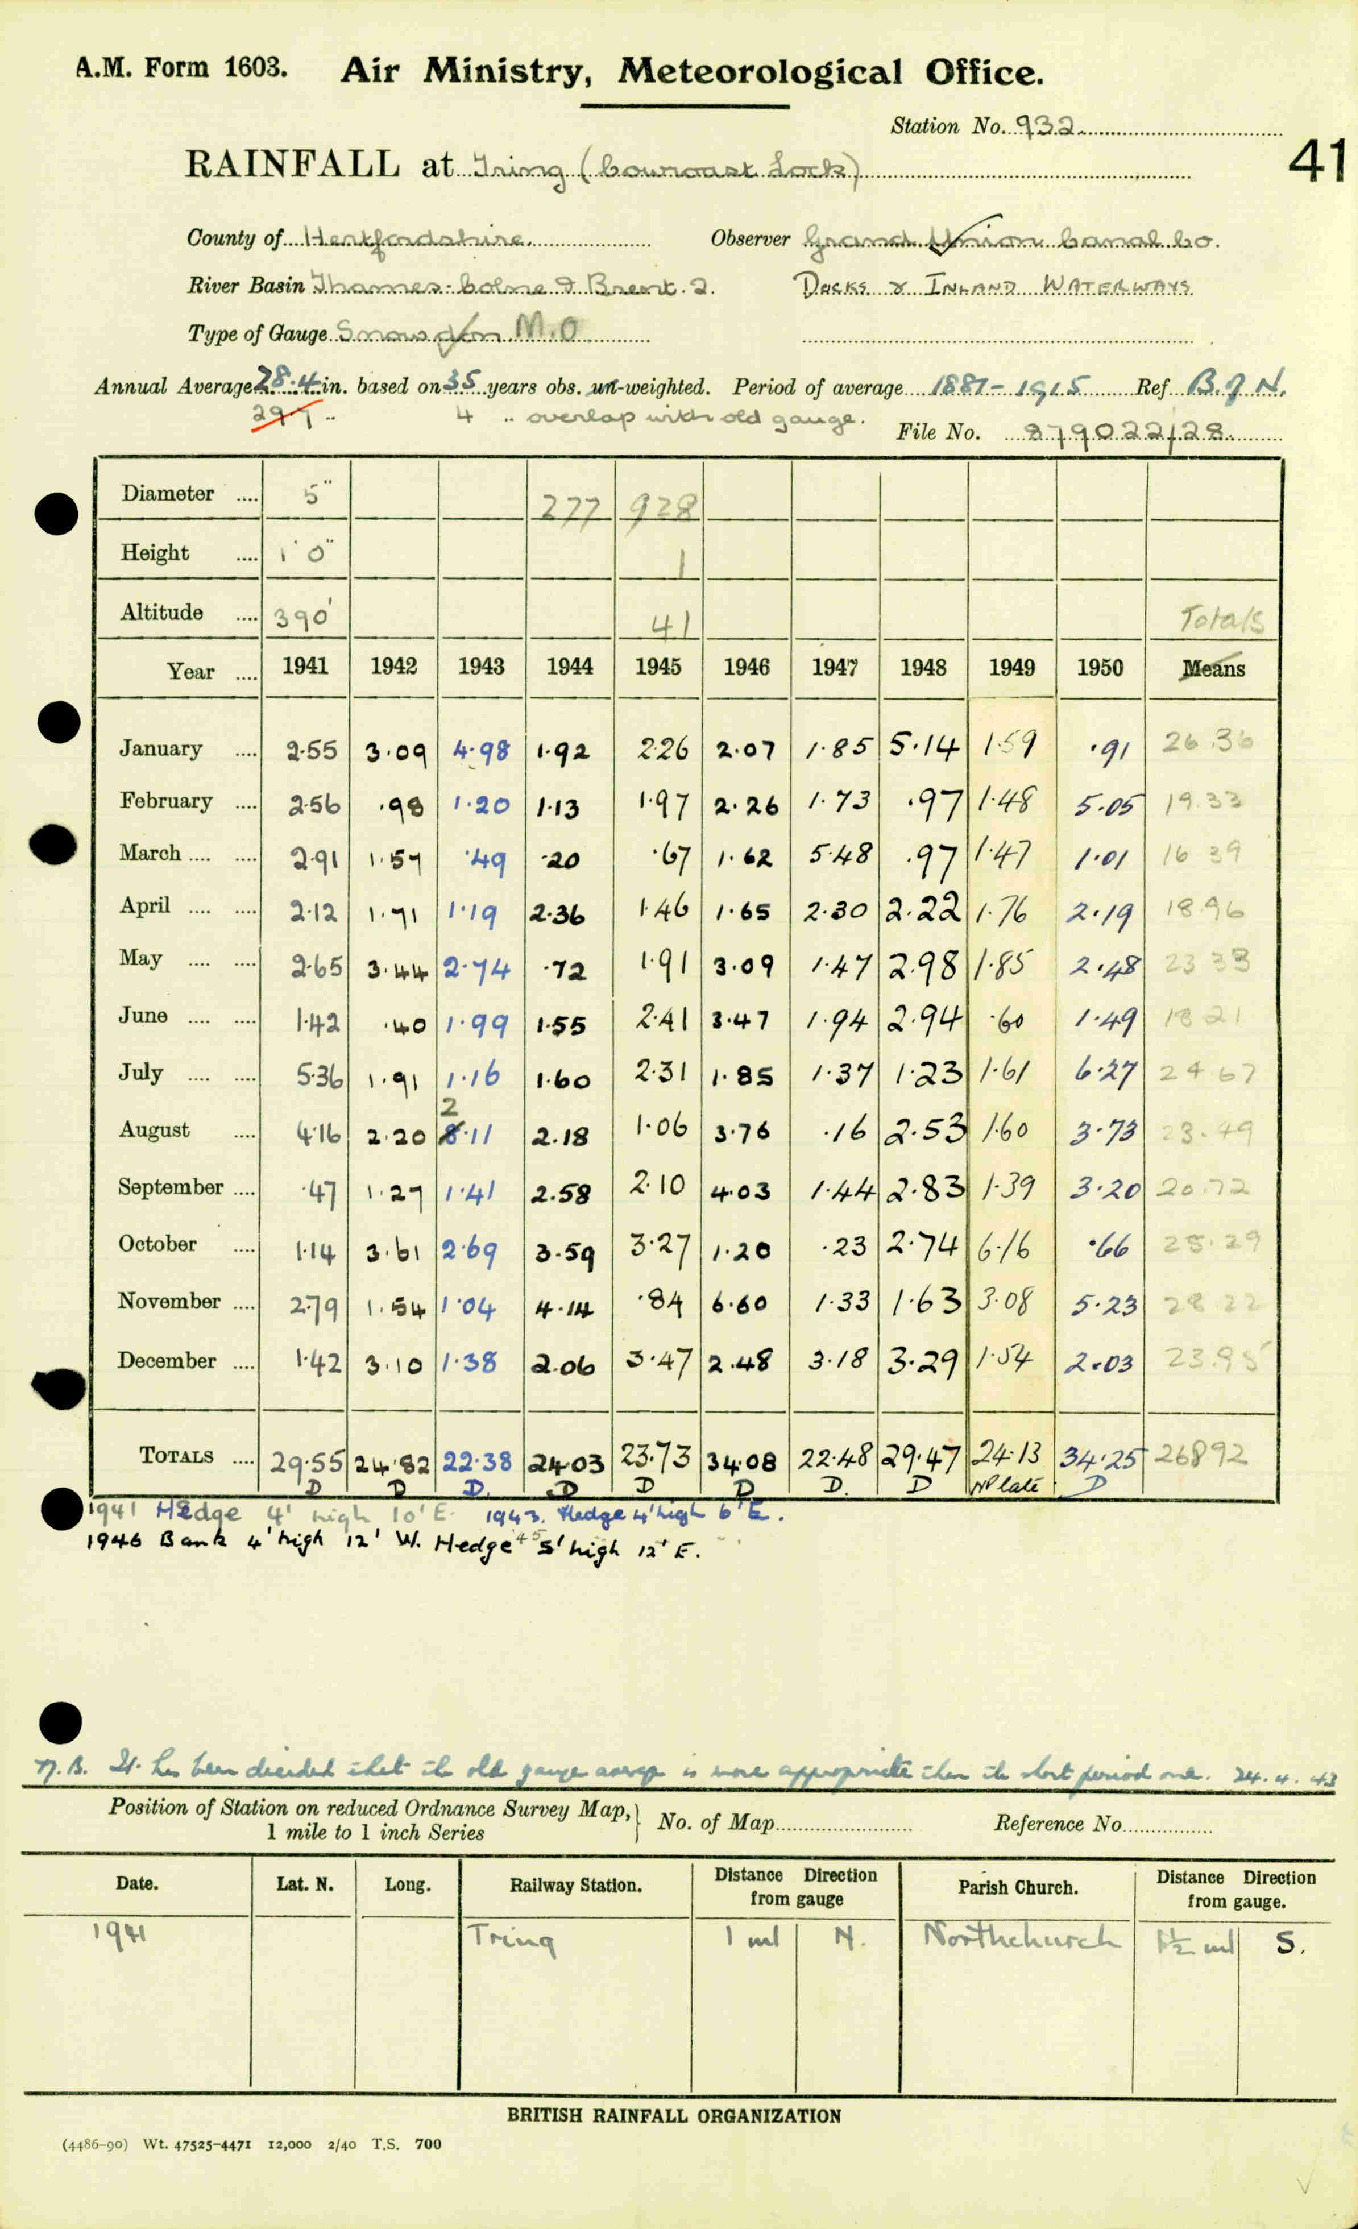 A.M. Form 1603. Air Ministry, Meteorological Office.
Station No. 932
41
RAINFALL at Tring (Cowroast Lock)
County of Hertfordshire Observer Grand Union Canal Co.
River Basin Thames-Colne & Brent. 2. Docks & Inland Waterways
Type of Gauge Snowdon M.O
Annual Average 28.4 in. based on 35 years obs. un-weighted. Period of average 1881-1915 Ref B.J.N.
29.7 " 4 " overlap with old gauge.
File No. 879022/28
Diameter .... 5" 277 928
Height .... 1' 0" 1
Altitude .... 390' 41 Totals
Year .... 1941 1942 1943 1944 1945 1946 1947 1948 1949 1950 Means
January .... 2.55 3.09 4.98 1.92 2.26 2.07 1.85 5.14 1.59 .91 26.36
February .... 2.56 .98 1.20 1.13 1.97 2.26 1.73 .97 1.48 5.05 19.33
March .... .... 2.91 1.57 .49 .20 .67 1.62 5.48 .97 1.47 1.01 16 39
April .... .... 2.12 1.71 1.19 2.36 1.46 1.65 2.30 2.22 1.76 2.19 18.96
May .... .... 2.65 3.44 2.74 .72 1.91 3.09 1.47 2.98 1.85 2.48 23 33
June .... .... 1.42 .40 1.99 1.55 2.41 3.47 1.94 2.94 .60 1.49 18 21
July .... .... 5.36 1.91 1.16 1.60 2.31 1.85 1.37 1.23 1.61 6.27 24 67
2
August .... 4.16 2.20 8.11 2.18 1.06 3.76 .16 2.53 1.60 3.73 23.49
September .... .47 1.27 1.41 2.58 2.10 4.03 1.44 2.83 1.39 3.20 20.72
October .... 1.14 3.61 2.69 3.59 3.27 1.20 .23 2.74 6.16 .66 25.29
November .... 2.79 1.54 1.04 4.14 .84 6.60 1.33 1.63 3.08 5.23 28 22
December .... 1.42 3.10 1.38 2.06 3.47 2.48 3.18 3.29 1.54 2.03 23.95
TOTALS .... 29.55 24.82 22.38 24.03 23.73 34.08 22.48 29.47 24.13 34.25 268 92
D D D. D D D D. D NP late D
1941 Hedge 4' high 10' E. 1943. Hedge 4' high 6' E.
1946 Bank 4' high 12' W. Hedge 4.5 5' high 12' E.
N.B. It has been decided that the old gauge average is more appropriate than the short period one. 24.4.43
Position of Station on reduced Ordnance Survey Map, } No. of Map Reference No.
1 mile to 1 inch Series
Date. Lat. N. Long. Railway Station. Distance Direction from gauge Parish Church. Distance Direction from gauge.
1941 Tring 1 ml N. Northchurch 1½ ml S.
BRITISH RAINFALL ORGANIZATION
(4486-90) Wt. 47525-4471 12,000 2/40 T.S. 700